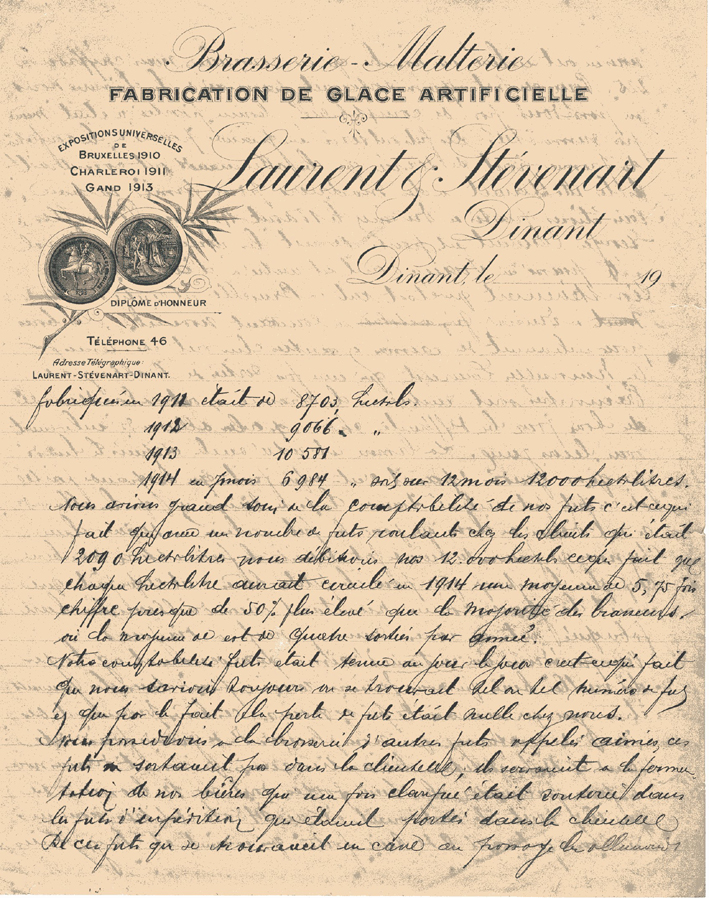 Brasserie - Malterie
FABRICATION DE GLACE ARTIFICIELLE
EXPOSITIONS UNIVERSELLES
DE
BRUXELLES 1910
CHARLEROI 1911
GAND 1913
Laurent & Stévenart
Dinant
Dinant, le 19
DIPLÔME D'HONNEUR
TÉLÉPHONE 46
Adresse Télégraphique:
LAURENT-STÉVENART-DINANT.
fabriquées en 1911 était de 8703 hectols.
1912 9066 "
1913 10581
1914 en 7 mois 6984 " soit sur 12 mois 12000 hectolitres.
Nous avions grand soin de la comptabilité de nos futs c'est ce qui
fait qu'avec un nombre de futs roulants chez les clients qui était
2090 hectolitres nous débitions nos 12.000 hectols ce qui fait que
chaque hectolitre aurait circulé en 1914 une moyenne de 5,75 fois
chiffre presque de 50% plus élevé que la majorité des brasseurs
où la moyenne est de quatre sorties par année.
Notre comptabilité futs était tenue au jour le jour c'est ce qui fait
que nous savions toujours où se trouvait tel ou tel numéro de fut
et que par le fait la perte de futs était nulle chez nous.
Nous possédions à la brasserie d'autres futs appelés ces
futs ne sortaient pas dans la clientelle, ils servaient à la fermen
tation de nos bières qui une fois était soutirée dans
les futs d'expédition qui étaient portés dans la clientelle
De ces futs qui se trouvaient en cave au passage des allemands